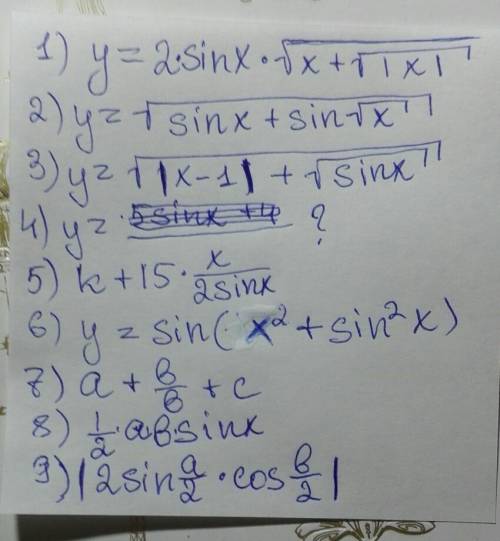 1) y = 2·sinx·√(x+√|x|)
2) y = √(sinx + sin√x)
3) y = √(|x-1| + √sinx)
4) y = 5sinx + 4 ?
5) k + 15·x/2sinx
6) y = sin(x² + sin²x)
7) a + в/в + c
8) 1/2·aв·sinx
9) |2sin a/2·cos в/2|